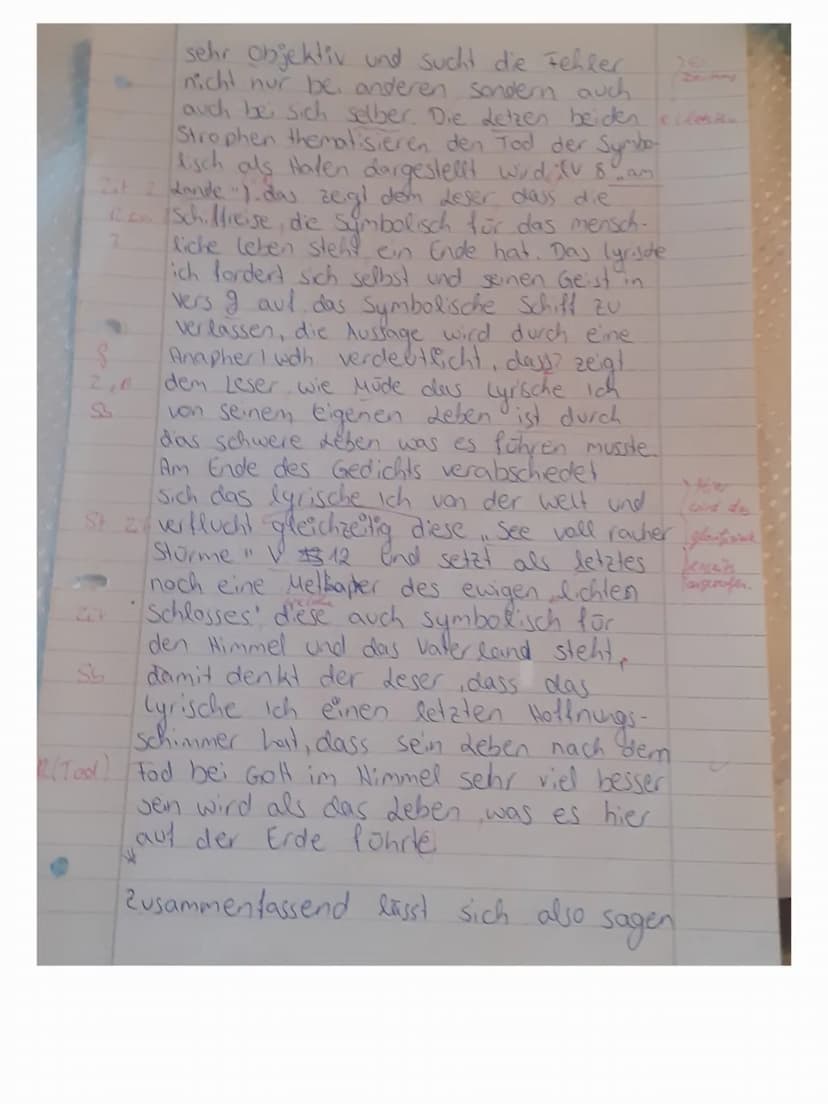 sehr Objektiv und sucht die Fehler
nicht nur bei anderen sondern auch
auch bei sich selber. Die Letzen beiden
Strophen thematisieren den Tod der Symbo-
lisch als Hafen dargestellt wird (V 8 „an
Lande"). das zeigt dem Leser dass die
Schiffreise, die Symbolisch für das mensch-
liche Leben steht ein Ende hat. Das lyrische
ich fordert sich selbst und seinen Geist in
Vers 9 auf das Symbolische Schiff zu
verlassen, die Aussage wird durch eine
Anapher / wdh verdeutlicht, dass zeigt
dem Leser wie Müde das Lyrische Ich
von seinem eigenen Leben ist durch
das schwere Leben was es führen musste.
Am Ende des Gedichts verabschedet
sich das lyrische ich von der Welt und
verflucht gleichzeitig diese „See voll raucher
Stürme" V 12 und setzt als letztes
noch eine Methaper des ewigen „lichten
Schlosses' diese auch symbolisch für
den Himmel und das Vaterland steht,
damit denkt der Leser, dass das
Lyrische Ich einen letzten Hoffnungs-
schimmer hat, dass sein Leben nach dem
R (Tod) Tod bei Gott im Himmel sehr viel besser
sen wird als das Leben was es hier
auf der Erde führte
Zusammenfassend lässt sich also sagen